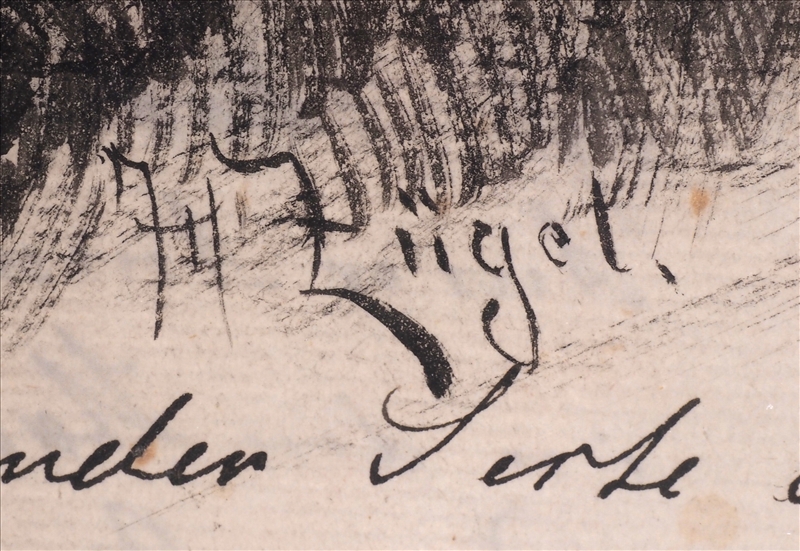 H Zügel.
nden Serbe